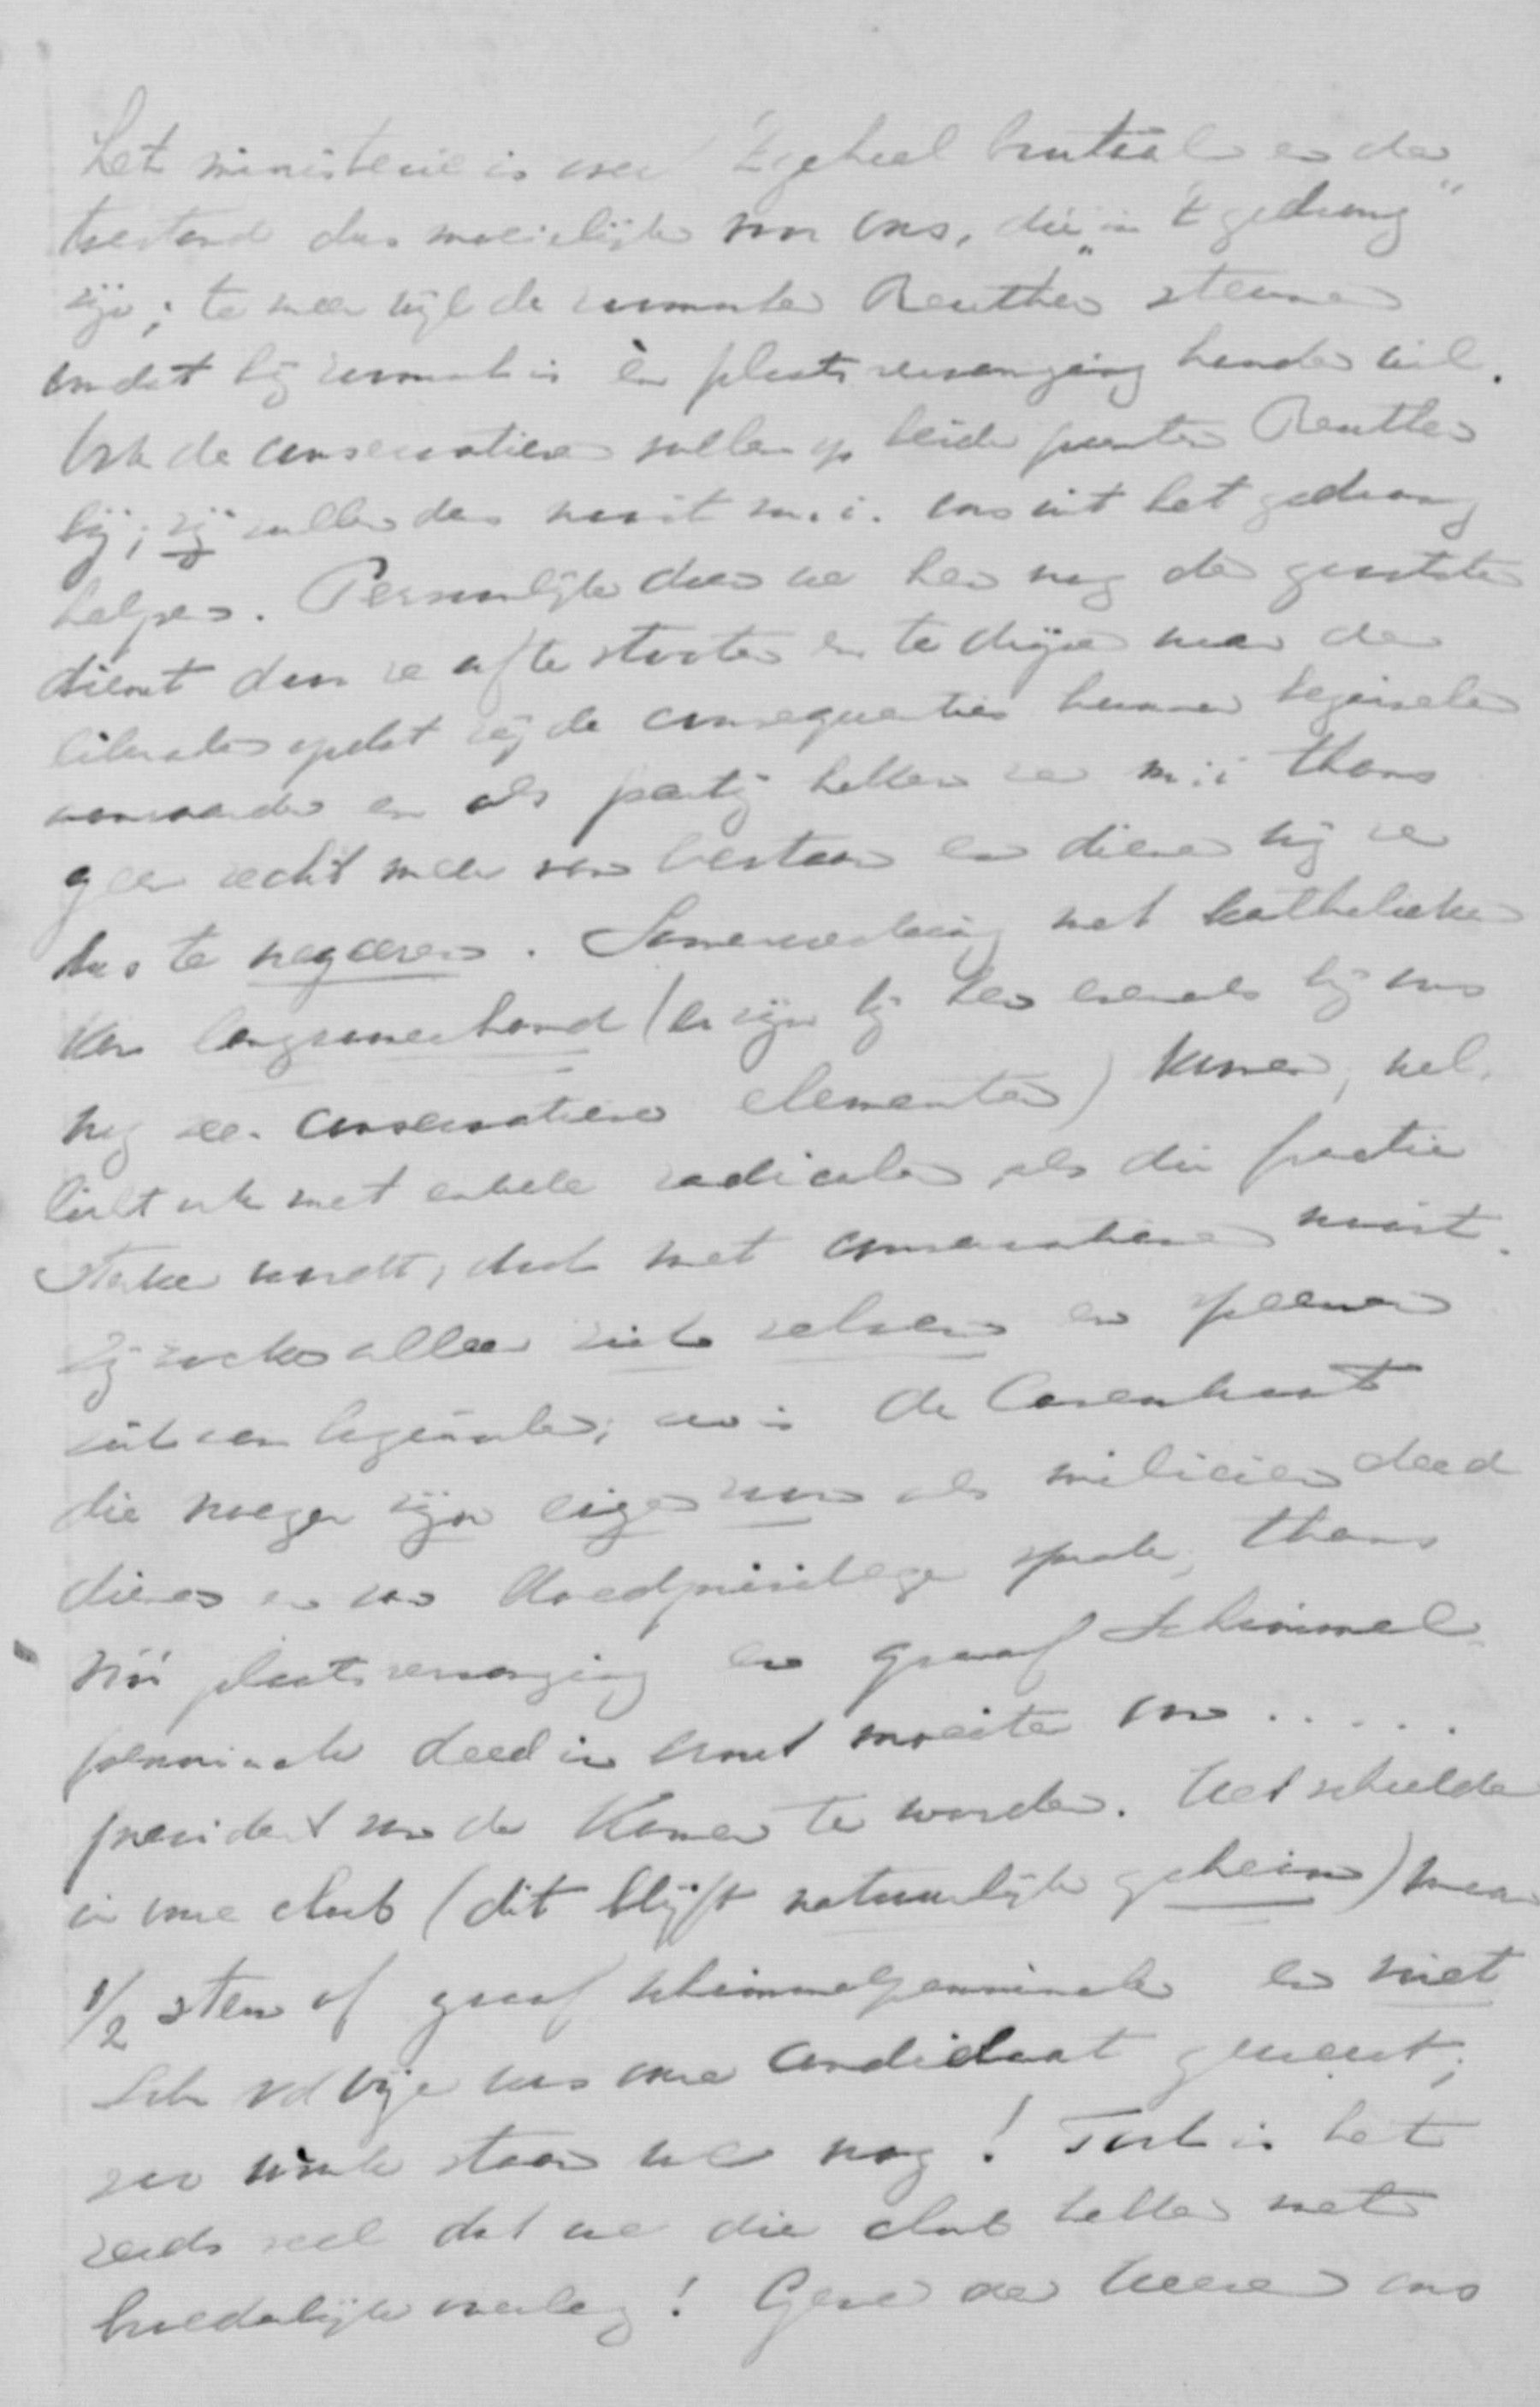 Het ministerie is over 't geheel brutaal en de
toestand dus moeielijk voor ons, die „in 't gedrang"
zijn; te meer wijl de roomschen Reuther steunen
omdat hij roomsch is en plaatsvervanging houden wil.
Ook de conservatieven vallen op beide punten Reuther
bij; zij zullen dus nooit m.i. ons uit het gedrang
helpen. Persoonlijk doen we hen nog de grootste
dienst door ze af te stooten en te drijven naar de
liberalen opdat zij de consequenties hunner beginselen
aanvaarden en als partij hebben ze m.i. thans
geen recht meer van bestaan en dienen wij ze
dus te negeeren. Samenwerking met katholieken
kan langzamerhand (er zijn bij hen evenals bij ons
nog conservatieve elementen) komen, wel-
licht ook met enkele radicalen, als die fractie
sterker wordt, doch met conservatieven nooit.
Zij zoeken alleen zich zelven en speenen
zich van beginselen; zoo is de Casembroot
die vroeger zijn eigen zoon als milicien deed
dienen en van bloedprivilege sprak, thans
vóór plaatsvervanging en graaf Schimmel-
penninck deed in ernst moeite om .....
president van de Kamer te worden. Het scheelde
in onze club (dit blijft natuurlijk geheim) maar
1/2 stem of graaf Schimmelpenninck en niet
Sch vd Wijc was onze candidaat geweest;
zoo zwak staan we nog! Toch is het
reeds veel dat we die club hebben met
broederlijk overleg! Geve de Heere ons